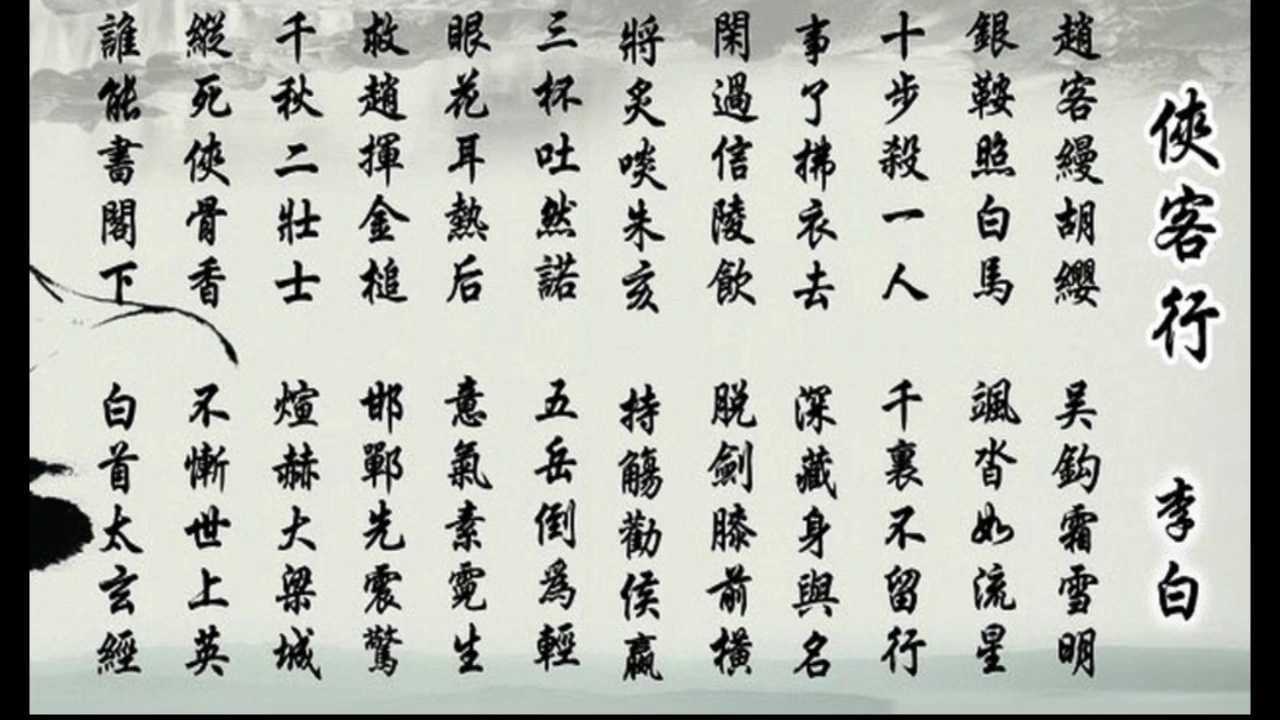 俠客行 李白
趙客縵胡纓 吴鈎霜雪明
銀鞍照白馬 颯沓如流星
十步殺一人 千裏不留行
事了拂衣去 深藏身與名
閑過信陵飲 脱劍膝前橫
將炙啖朱亥 持觴勸侯嬴
三杯吐然諾 五岳倒爲輕
眼花耳熱后 意氣素霓生
救趙揮金槌 邯鄲先震驚
千秋二壯士 煊赫大梁城
縱死俠骨香 不慚世上英
誰能書閣下 白首太玄經